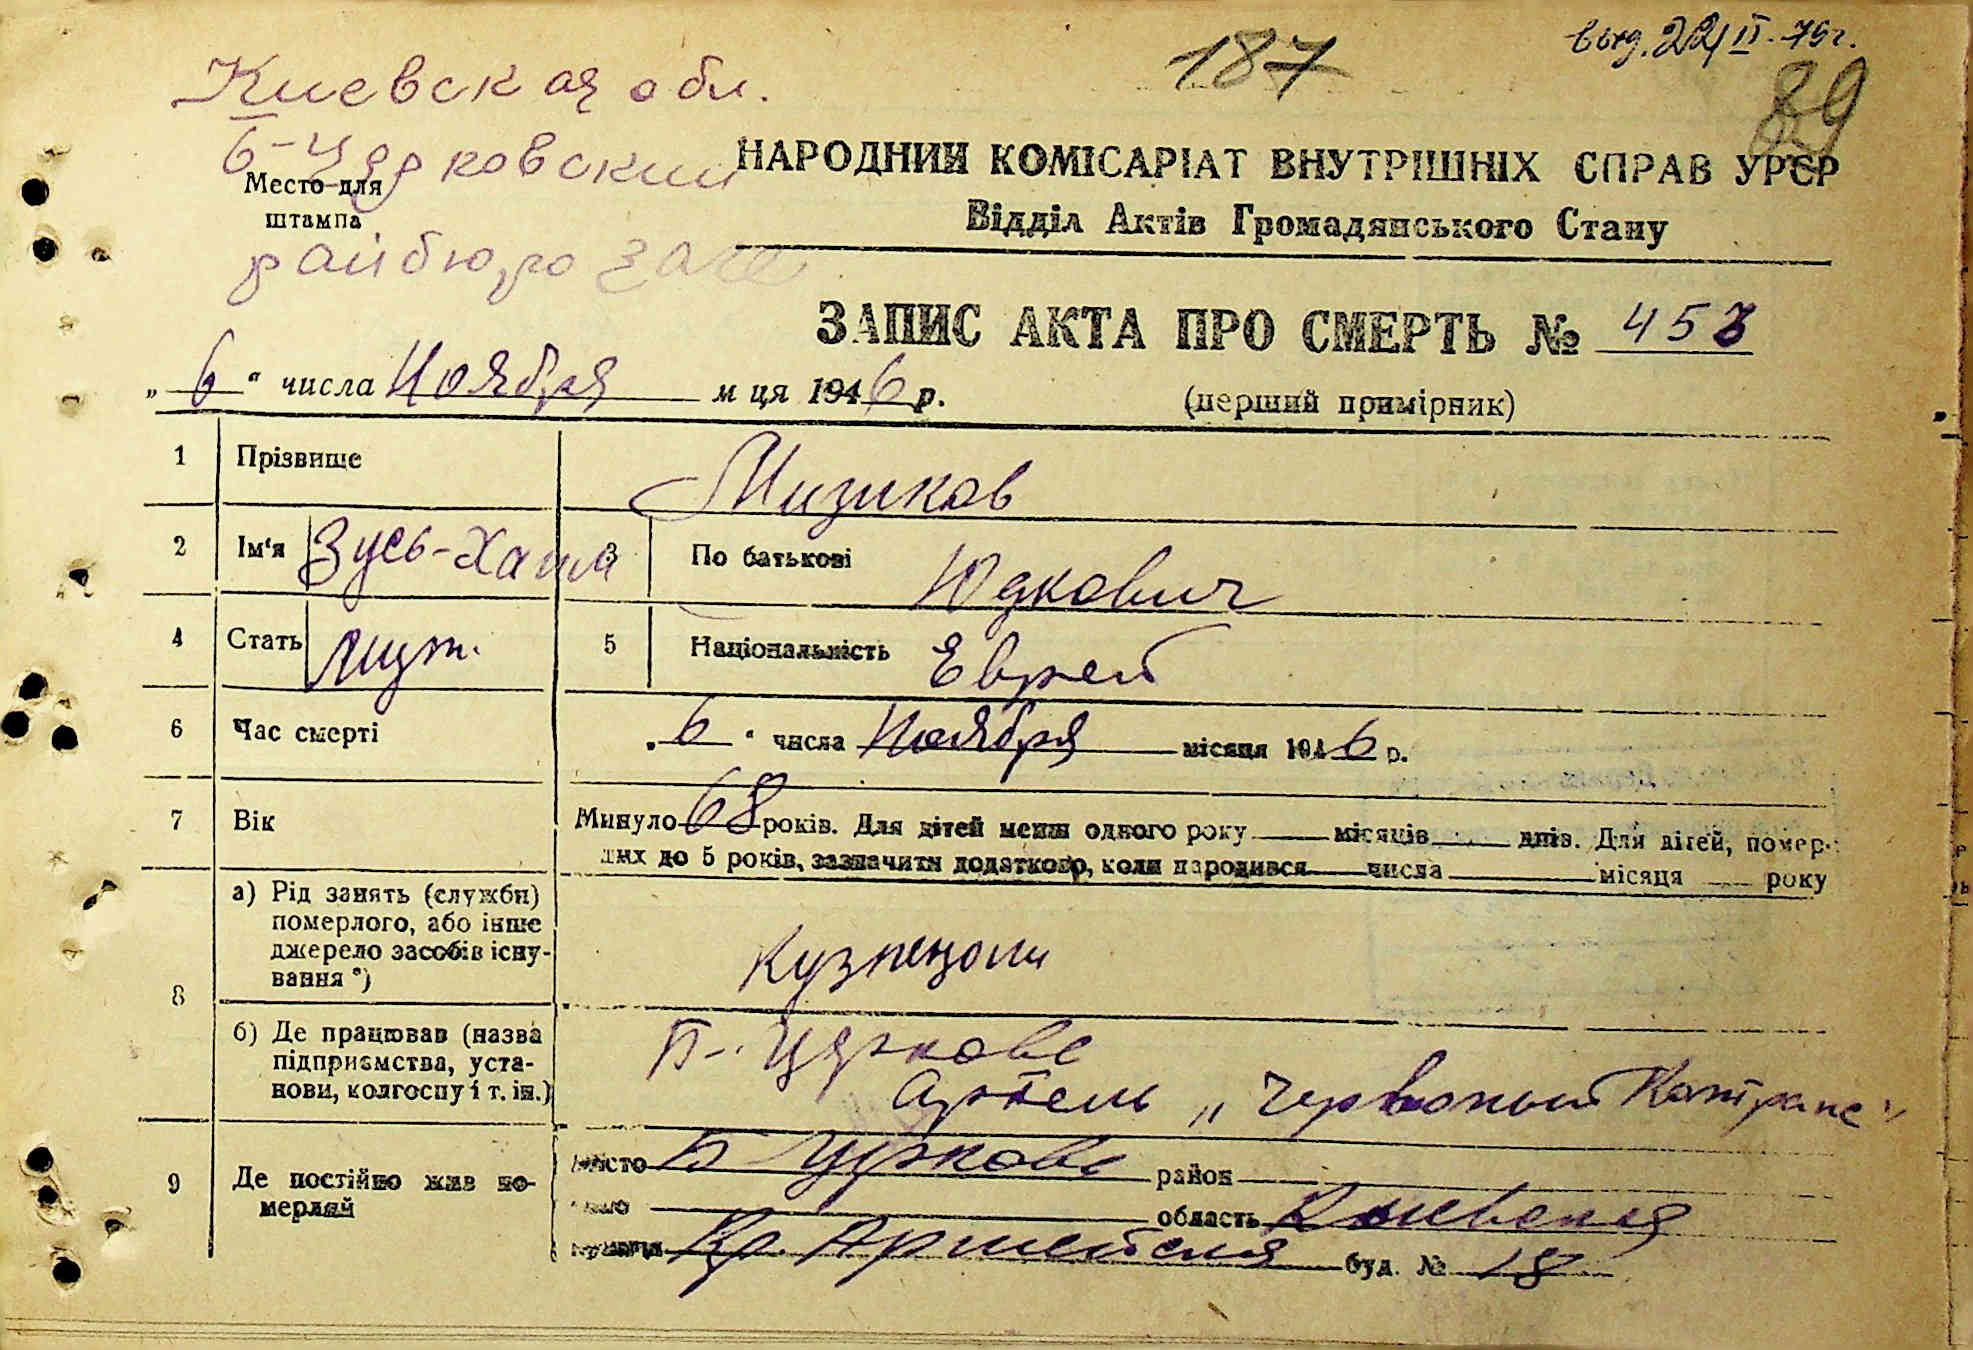 187
выд. 22/II-75г.
89
Киевская обл.
Б-Церковский
Место для
штампа
райбюро загс
НАРОДНИЙ КОМІСАРІАТ ВНУТРІШНІХ СПРАВ УРСР
Відділ Актів Громадянського Стану
ЗАПИС АКТА ПРО СМЕРТЬ №
„ 6 “ числа Ноября м ця 1946 р.
(перший примірник)
1 Прізвище Мизиков
2 Ім'я Зусь-Хаим 3 По батькові Юдкович
4 Стать муж. 5 Національність Еврей
6 Час смерті „ 6 “ числа Ноября місяця 1946 р.
7 Вік Минуло 68 років. Для дітей менш одного року місяців днів. Для дітей, помер-
лих до 5 років, зазначити додатково, коли народився числа місяця року
8 а) Рід занять (служби)
померлого, або інше
джерело засобів існу-
вання *)
Кузнецом
б) Де працював (назва
підприємства, уста-
нови, колгоспу і т. ін.)
Б-Церковь
Артель „Червоный
9 Де постійно жив по-
мерлий
місто Б Церковь район
область Киевская
вулиця Кр. Армейская буд. № 18